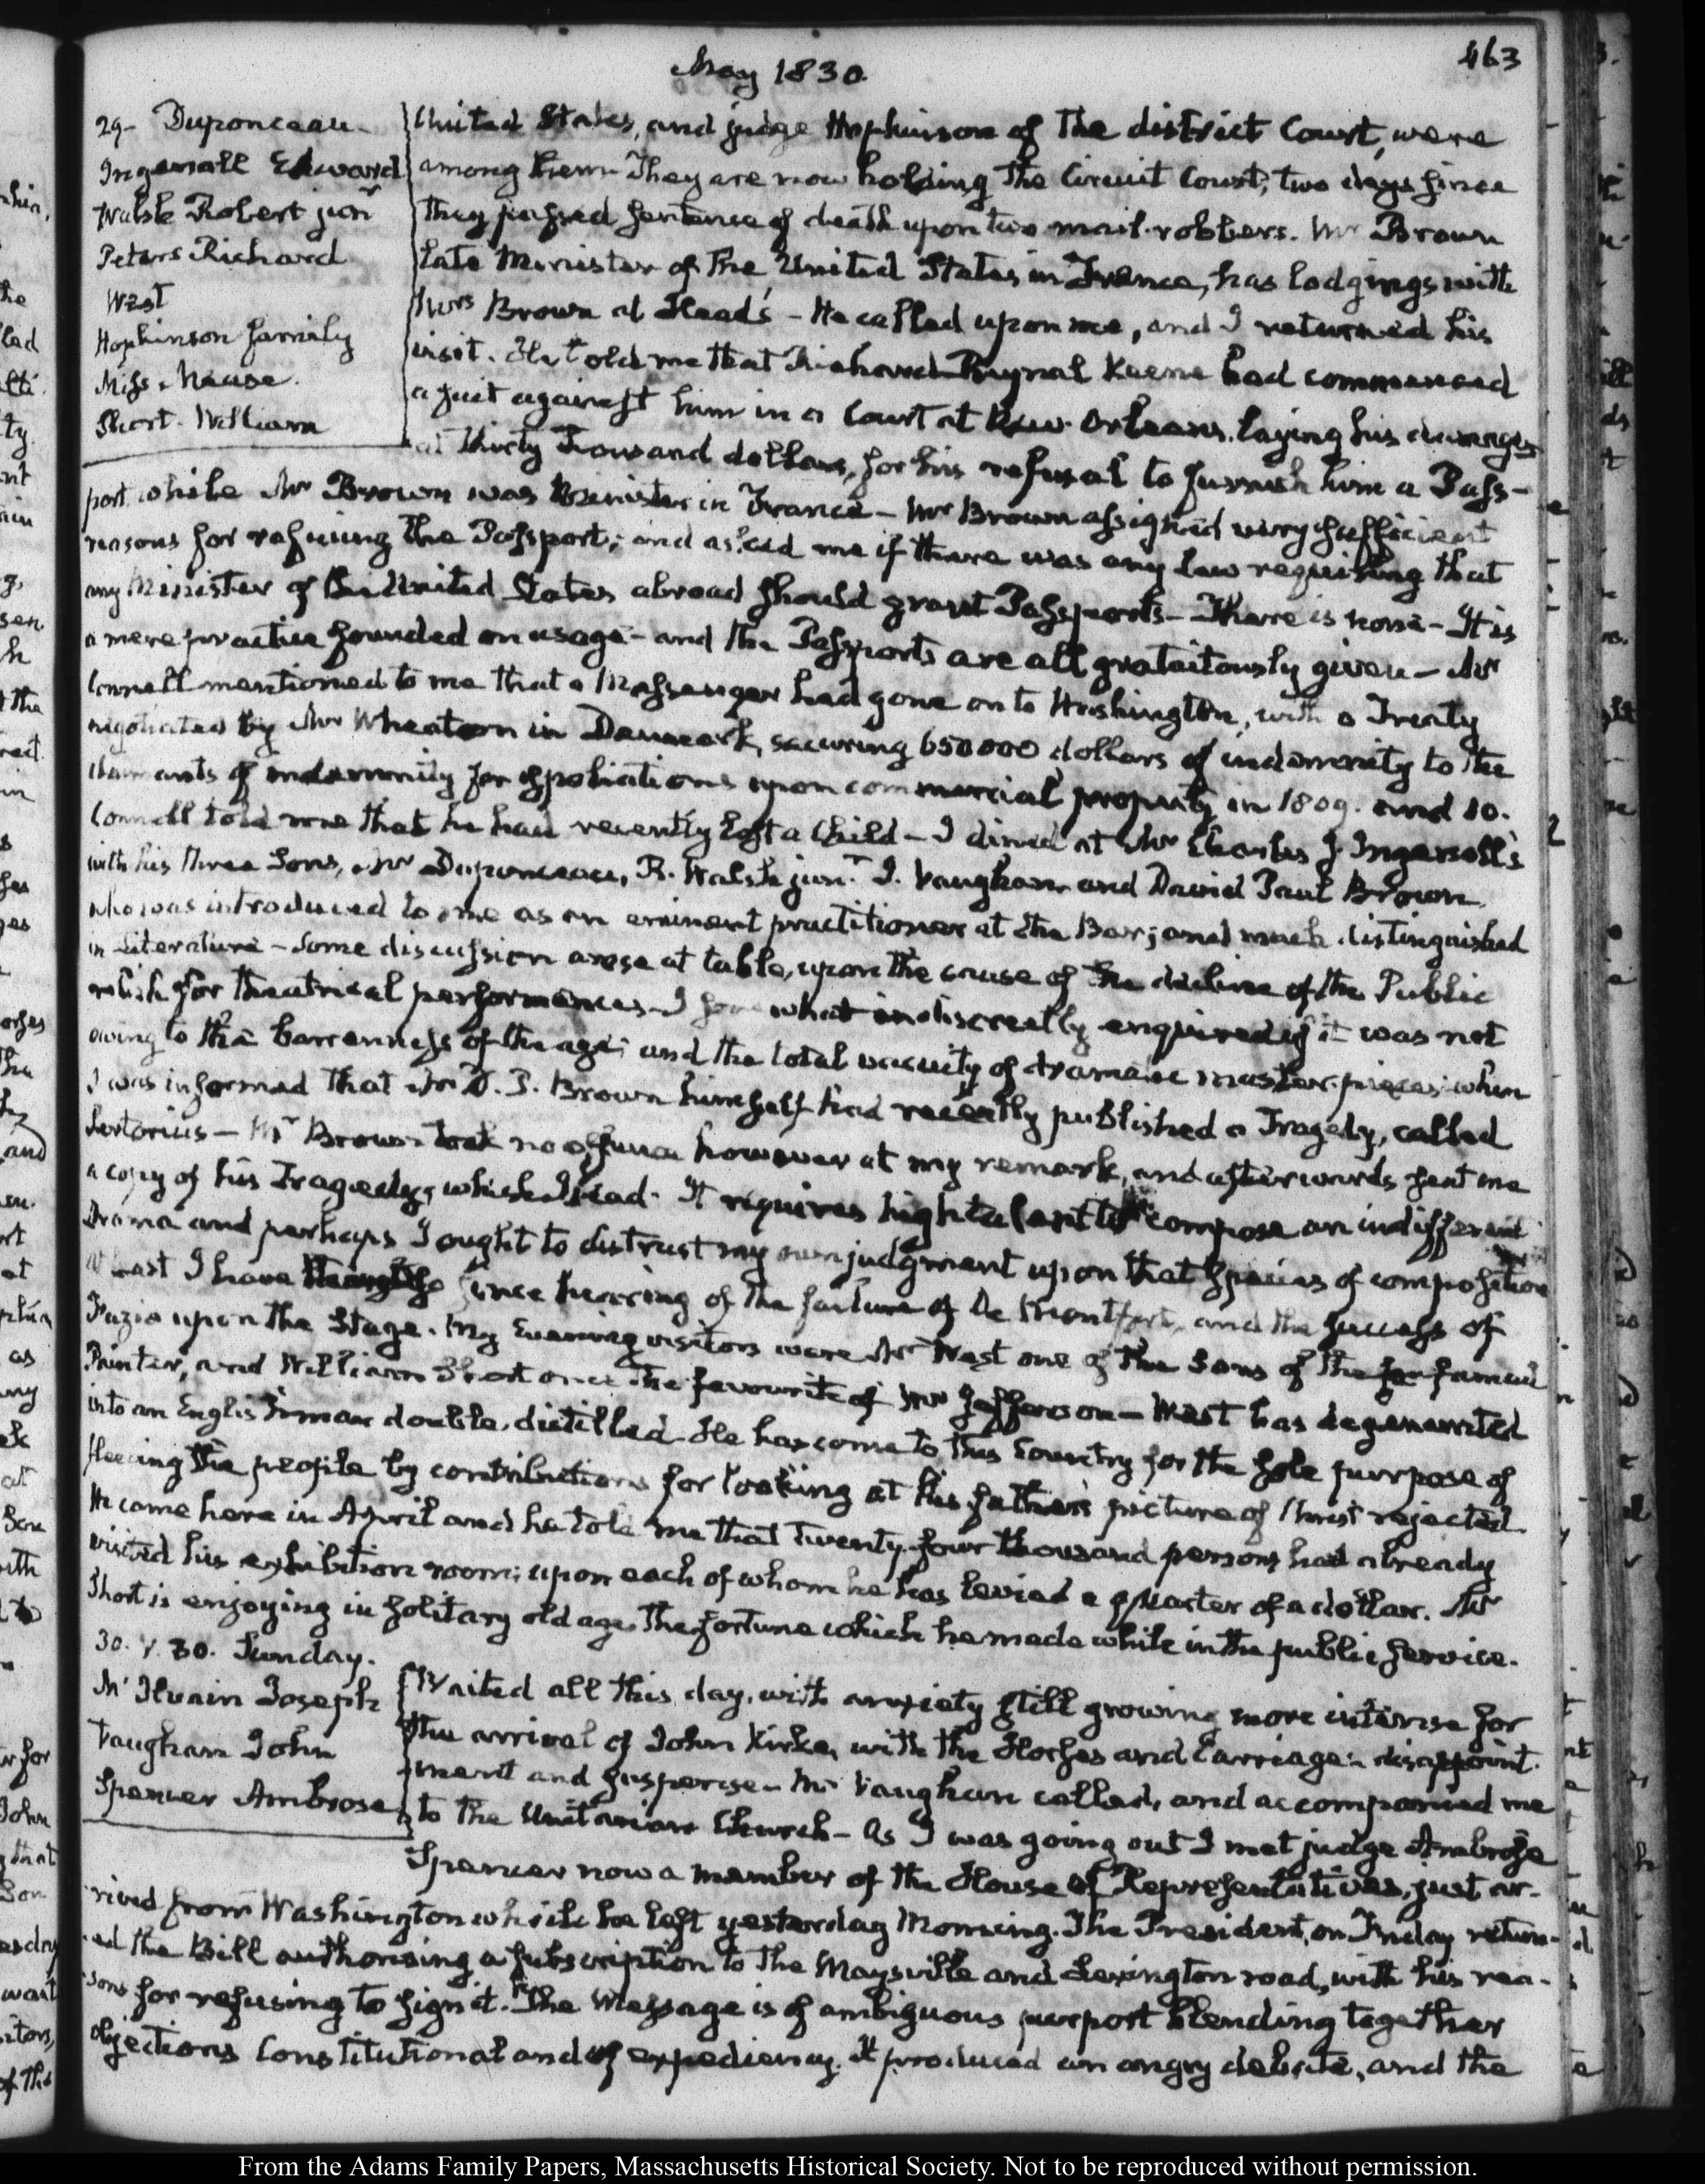 463
May 1830.
29- Duponceau-
Ingersoll Edward
Walsh Robert junr
Peters Richard
West
Hopkinson family
Miss Mease.
Short- William
United States, and judge Hopkinson of the district Court, were
among them- They are now holding the Circuit Court, two days since
they passed sentence of death upon two mail-robbers. Mr Brown
late Minister of the United States in France, has lodgings with
Mrs Brown at Head's- He called upon me, and I returned his
visit. He told me that Richard Raynal Keene had commenced
a suit against him in a Court at New-Orleans, laying his damages
at thirty thousand dollars, for his refusal to furnish him a Pass-
port while Mr Brown was Minister in France- Mr Brown assigned very sufficient
reasons for refusing the Passport; and asked me if there was any law requiring that
any Minister of the United States abroad should grant Passports- There is none- It is
a mere practice founded on usage- and the Passports are all gratuitously given- Mr
Connell mentioned to me that a Messenger had gone on to Washington, with a Treaty
negotiated by Mr Wheaton in Denmark, securing 650000 dollars of indemnity to the
claimants of indemnity for spoliations upon commercial property in 1809. and 10.
Connell told me that he had recently lost a Child- I dined at Mr Charles J. Ingersoll's
with his three Sons, Mr Duponceau, R. Walsh junr. J. Vaughan and David Paul Brown,
who was introduced to me as an eminent practitioner at the Bar; and much distinguished
in Literature- Some discussion arose at table, upon the cause of the decline of the Public
relish for theatrical performances- I somewhat indiscreetly enquired if it was not
owing to the barrenness of the age; and the total vacuity of dramatic master-pieces; when
I was informed that Mr D. P. Brown himself had recently published a Tragedy, called
Sertorius- Mr Brown took no offence however at my remark, and afterwards sent me
a copy of his Tragedy, which I read. It requires high talent to compose an indifferent
Drama and perhaps I ought to distrust my own judgment upon that species of composition
at least I have thought so since hearing of the failure of De Montfort, and the success of
Fazio upon the Stage. My Evening visitors were Mr West one of the Sons of the far famed
Painter, and William Short once the favourite of Mr Jefferson- West has degenerated
into an Englishman double distilled- He has come to this Country for the sole purpose of
fleecing the people by contributions for looking at his father's picture of Christ rejected.
He came here in April and he told me that twenty-four thousand persons had already
visited his exhibition room; upon each of whom he has levied a quarter of a dollar. Mr
Short is enjoying in solitary old age, the fortune which he made while in the public service.
30. V. 30. Sunday.
McIlvain Joseph
Vaughan John
Spencer Ambrose
Waited all this day, with anxiety still growing more intense for
the arrival of John Kirke, with the Horses and Carriage- disappoint-
ment and suspense- Mr Vaughan called, and accompanied me
to the Unitarian Church- As I was going out I met judge Ambrose
Spencer now a member of the House of Representatives, just ar-
rived from Washington which he left yesterday Morning. The President, on Friday return-
ed the Bill authorising a subscription to the Maysville and Lexington road, with his rea-
sons for refusing to sign it. The Message is of ambiguous purport blending together
objections Constitutional and of expediency. It produced an angry debate, and the
From the Adams Family Papers, Massachusetts Historical Society. Not to be reproduced without permission.